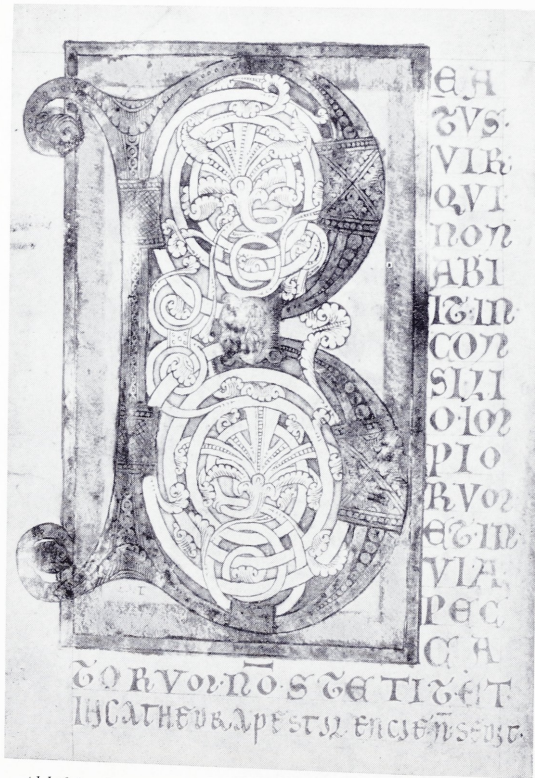 B
EA
TVS·
VIR
QVI
NON
ABI
IT·IN
CON
SILI
O·IM
PIO
RVM
ET·IN
VIA
PEC
CA
TORVM·NŌ·STETIT·ET·
IN CATHEDRA PESTILENCIE